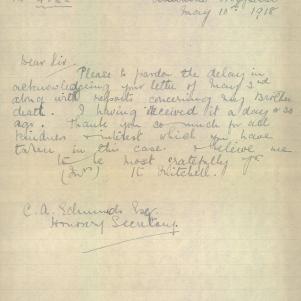 May 10th 1918
Dear Sir.
Please to pardon the delay in
acknowledging your letter of May 3rd
along with reports concerning my Brother
death. I having received it a day or so
ago. Thank you so much for all
kindness & interest which you have
taken in this case. & believe me
to be most gratefully yrs
Mitchell.
C. A. Edmunds Esq.
Honorary Secretary.